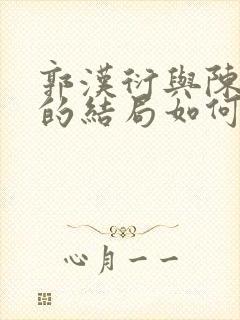 郭漢衍與陳
的結局如何
心月一一